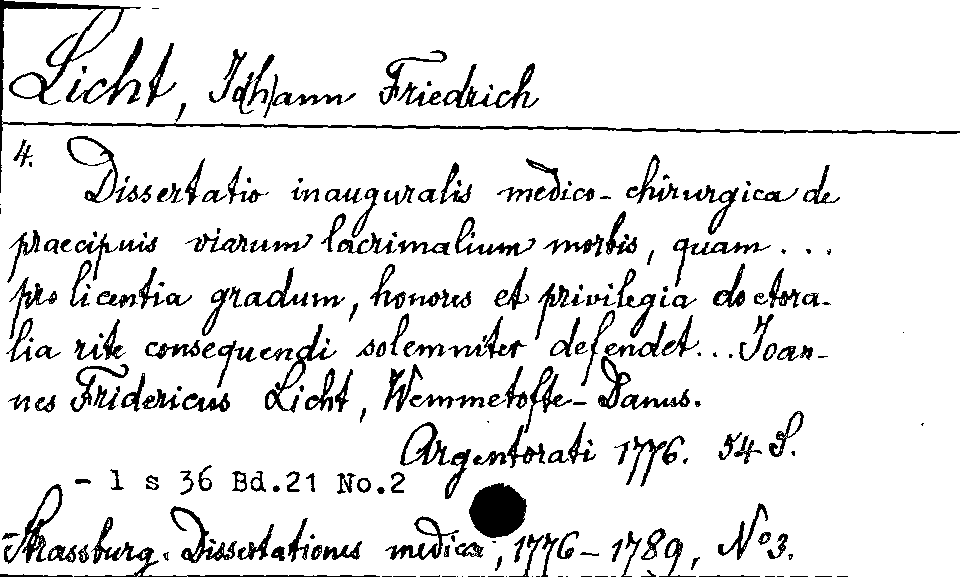 Licht, Jo(h)ann Friedrich
4. Dissertatio inauguralis medico-chirurgica de
praecipuis viarum lacrimalium morbis, quam ...
pro licentia gradum, honores et privilegia doctora-
lia rite consequendi solemniter defendet... Joan-
nes Fridericus Licht, Wemmetofte-Danus.
Argentorati 1776. 54 S.
- 1 s 36 Bd.21 No.2
Strassburg. Dissertationes medicae, 1776-1789, No 3.